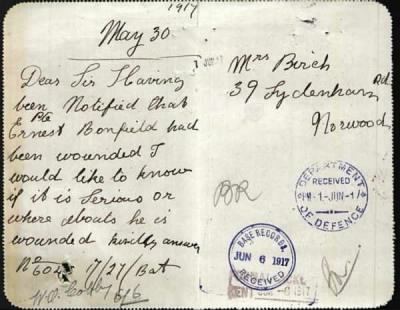 1917
May 30
Dear Sir Having
been Notified that
E Pte
Ernest Bonfield had
been wounded I
would like to know
if it is Serious or
where abouts he is
wounded kindly answer
No 604 17/27/Bat
6/6
Mrs Birch
39 Sydenham Rd
Norwood
BR
DEPARTMENT
RECEIVED
PM-1-JUN-17
OF DEFENCE
BASE RECORDS.
JUN 6 1917
RECEIVED